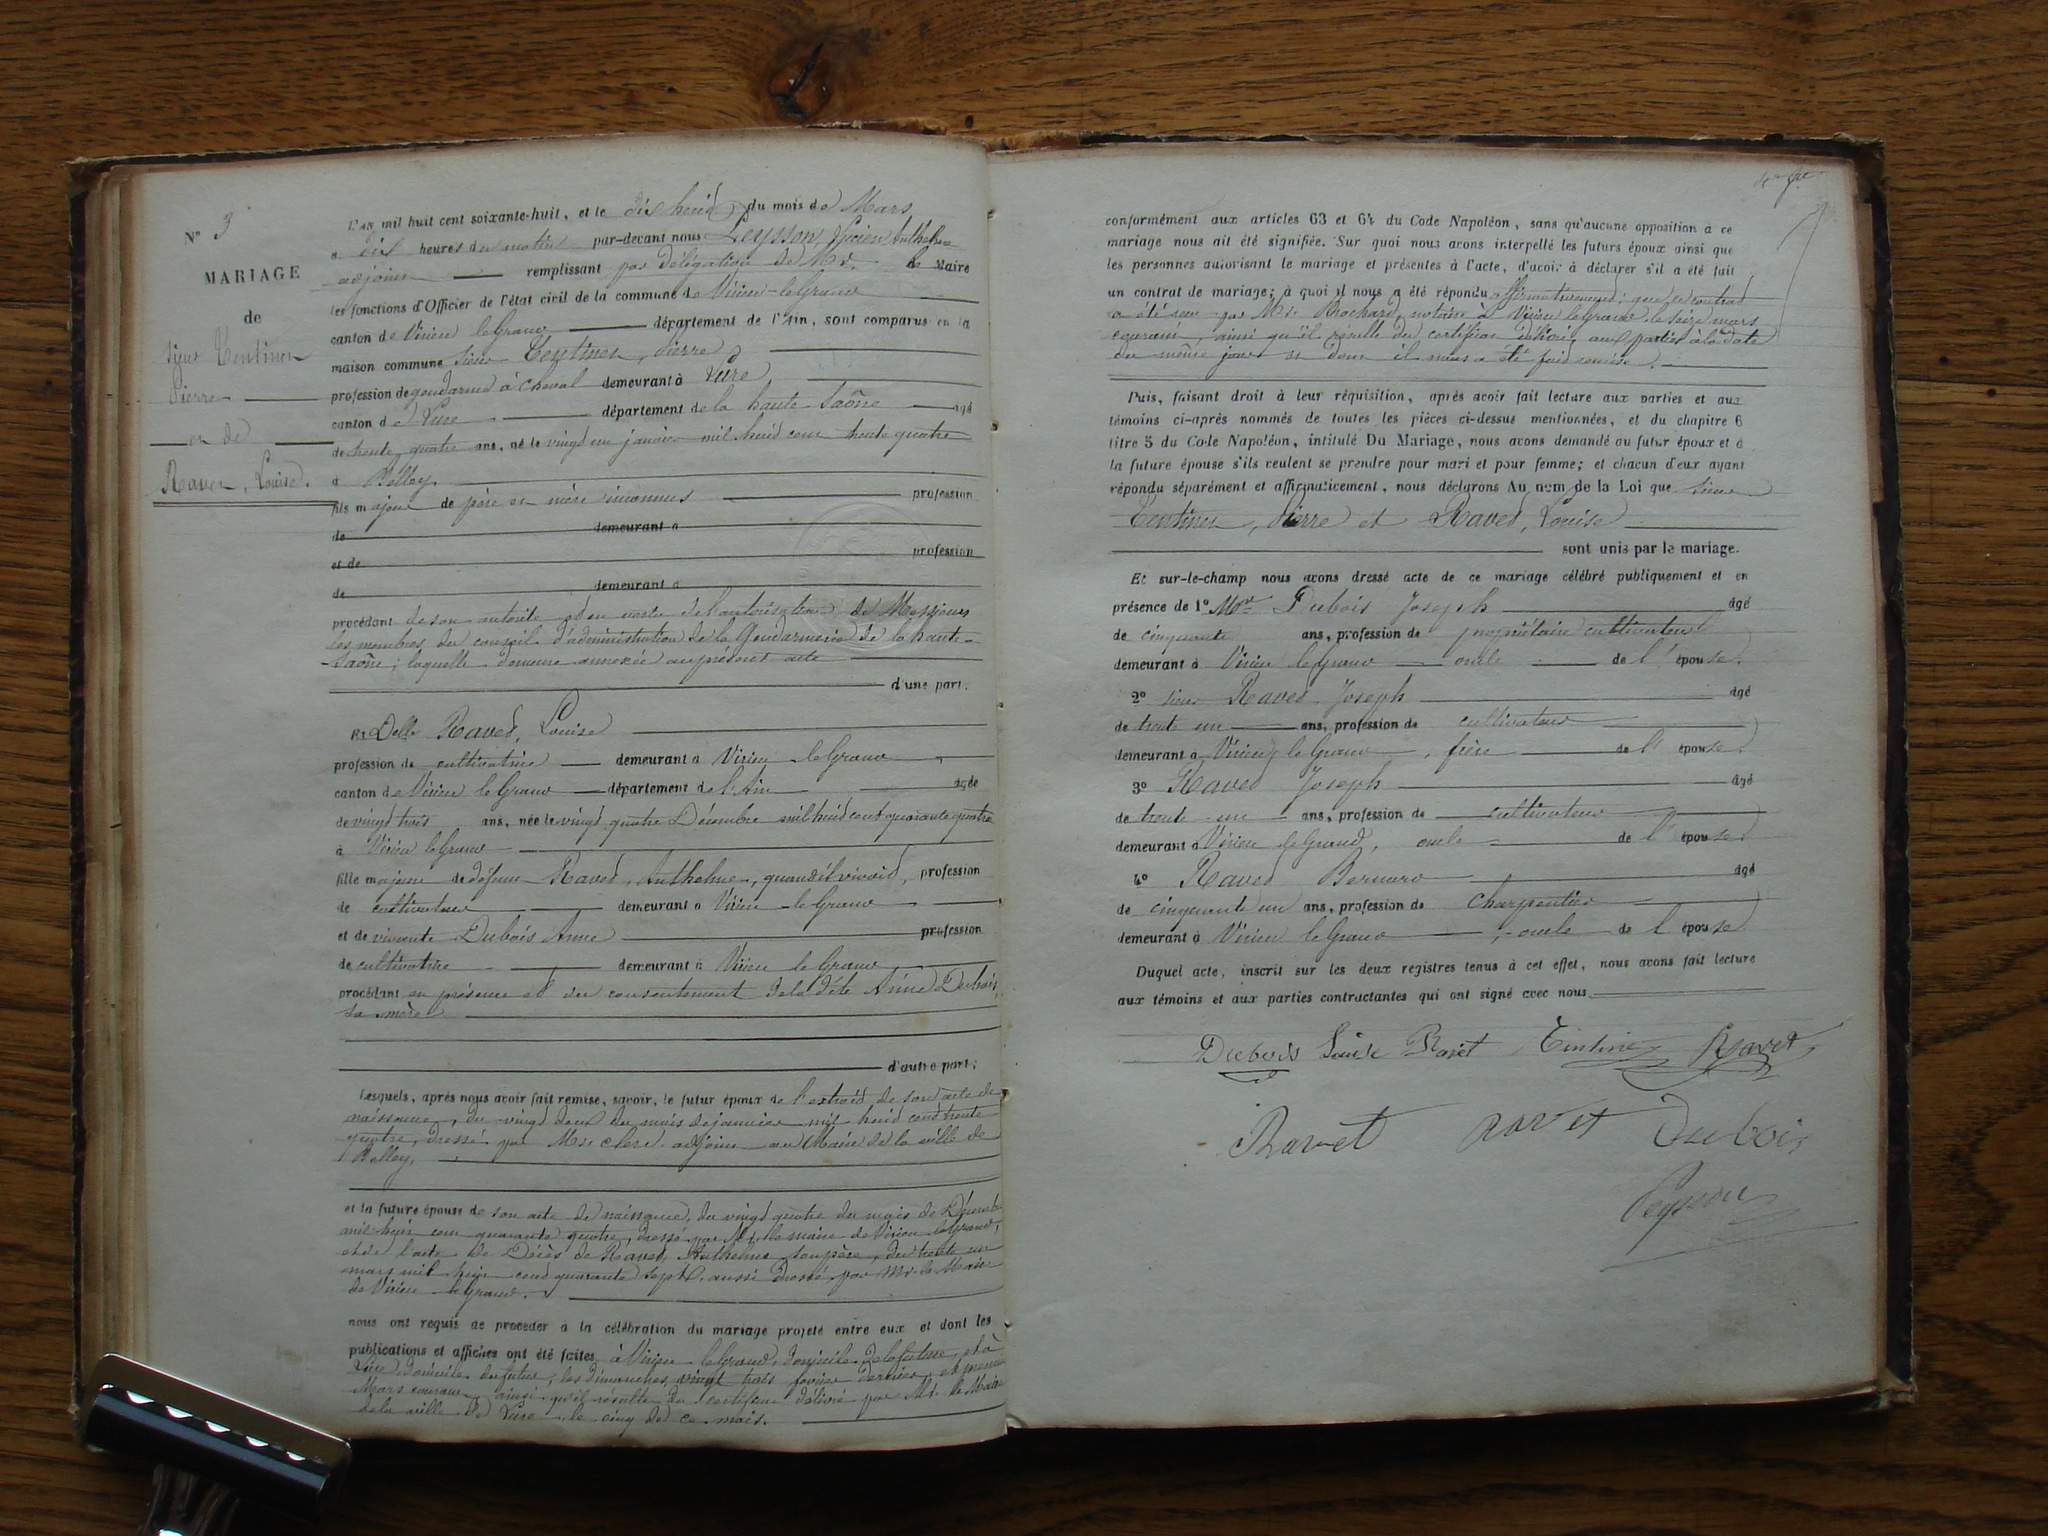 N° 3
MARIAGE
de
Sieur Tentinet
Pierre
et de
Ravet, Louise.
L'an mil huit cent soixante-huit, et le dix huit du mois de Mars
à dix heures du matin par-devant nous Peysson, Anthelme
adjoint remplissant par délégation de Mr. le Maire
les fonctions d'Officier de l'état civil de la commune de Virieu-le-Grand
canton de Virieu le Grand département de l'Ain, sont comparus en la
maison commune Sieur Tentinet, Pierre
profession de gendarme à cheval demeurant à Lure
canton de Lure département de la haute Saône âgé
de trente quatre ans, né le vingt un janvier mil huit cent trente quatre
à Belley
fils majeur de père et mère inconnus profession
de demeurant à
et de profession
de demeurant à
procédant de son autorité et en vertu de l'autorisation de Messieurs
les membres du conseil d'administration de la Gendarmerie de la haute
Saône, laquelle demeure annexée au présent acte
d'une part.
Et Delle Ravet, Louise
profession de cultivatrice demeurant à Virieu le Grand
canton de Virieu le Grand département de l'Ain âgée
de vingt trois ans, née le vingt quatre Décembre mil huit cent quarante quatre
à Virieu le Grand
fille majeure de défunt Ravet, Anthelme, quand il vivait, profession
de cultivateur demeurant à Virieu le Grand
et de vivante Dubois Anne profession
de cultivatrice demeurant à Virieu le Grand
procédant en présence et du consentement de la dite Anne Dubois,
sa mère
d'autre part;
Lesquels, après nous avoir fait remise, savoir, le futur époux de l'extrait de son acte de
naissance, du vingt deux du mois de janvier mil huit cent trente
quatre, dressé par Mr Clerc adjoint au Maire de la ville de
Belley,
et la future épouse de son acte de naissance, du vingt quatre du mois de Décembre
mil huit cent quarante quatre, dressé par Mr. le maire de Virieu le Grand,
et de l'acte de Décès de Ravet, Anthelme, son père, du trente un
mars mil huit cent quarante sept, aussi dressé par Mr. le Maire
de Virieu le Grand.
nous ont requis de procéder à la célébration du mariage projeté entre eux et dont les
publications et affiches ont été faites à Virieu le Grand, domicile de la future, et à
Lure domicile du futur, les dimanches vingt trois février dernier, et premier
Mars courant, ainsi qu'il résulte du certificat délivré par Mr. le Maire
de la ville de Lure, le cinq de ce mois.
conformément aux articles 63 et 64 du Code Napoléon, sans qu'aucune opposition à ce
mariage nous ait été signifiée. Sur quoi nous avons interpellé les futurs époux ainsi que
les personnes autorisant le mariage et présentes à l'acte, d'avoir à déclarer s'il a été fait
un contrat de mariage; à quoi il nous a été répondu affirmativement; que ce contrat
a été reçu par Me Brochard, notaire à Virieu le Grand le seize mars
courant, ainsi qu'il résulte du certificat délivré aux parties à la date
du même jour et dont il nous a été fait remise.
Puis, faisant droit à leur réquisition, après avoir fait lecture aux parties et aux
témoins ci-après nommés de toutes les pièces ci-dessus mentionnées, et du chapitre 6
titre 5 du Code Napoléon, intitulé Du Mariage, nous avons demandé au futur époux et à
la future épouse s'ils veulent se prendre pour mari et pour femme; et chacun d'eux ayant
répondu séparément et affirmativement, nous déclarons Au nom de la Loi que Sieur
Tentinet, Pierre et Ravet, Louise
sont unis par le mariage.
Et sur-le-champ nous avons dressé acte de ce mariage célébré publiquement et en
présence de 1° Mr Dubois Joseph âgé
de cinquante ans, profession de propriétaire cultivateur
demeurant à Virieu le Grand oncle de l'épouse.
2° sieur Ravet Joseph âgé
de trente un ans, profession de cultivateur
demeurant à Virieu le Grand, frère de l'épouse
3° Ravet Joseph âgé
de trente-un ans, profession de cultivateur
demeurant à Virieu le Grand, oncle de l'épouse
4° Ravet Bernard âgé
de cinquante un ans, profession de charpentier
demeurant à Virieu le Grand, oncle de l'épouse
Duquel acte, inscrit sur les deux registres tenus à cet effet, nous avons fait lecture
aux témoins et aux parties contractantes qui ont signé avec nous
Dubois Louise Ravet Tintinet Ravet
Ravet Ravet Dubois
Peysson